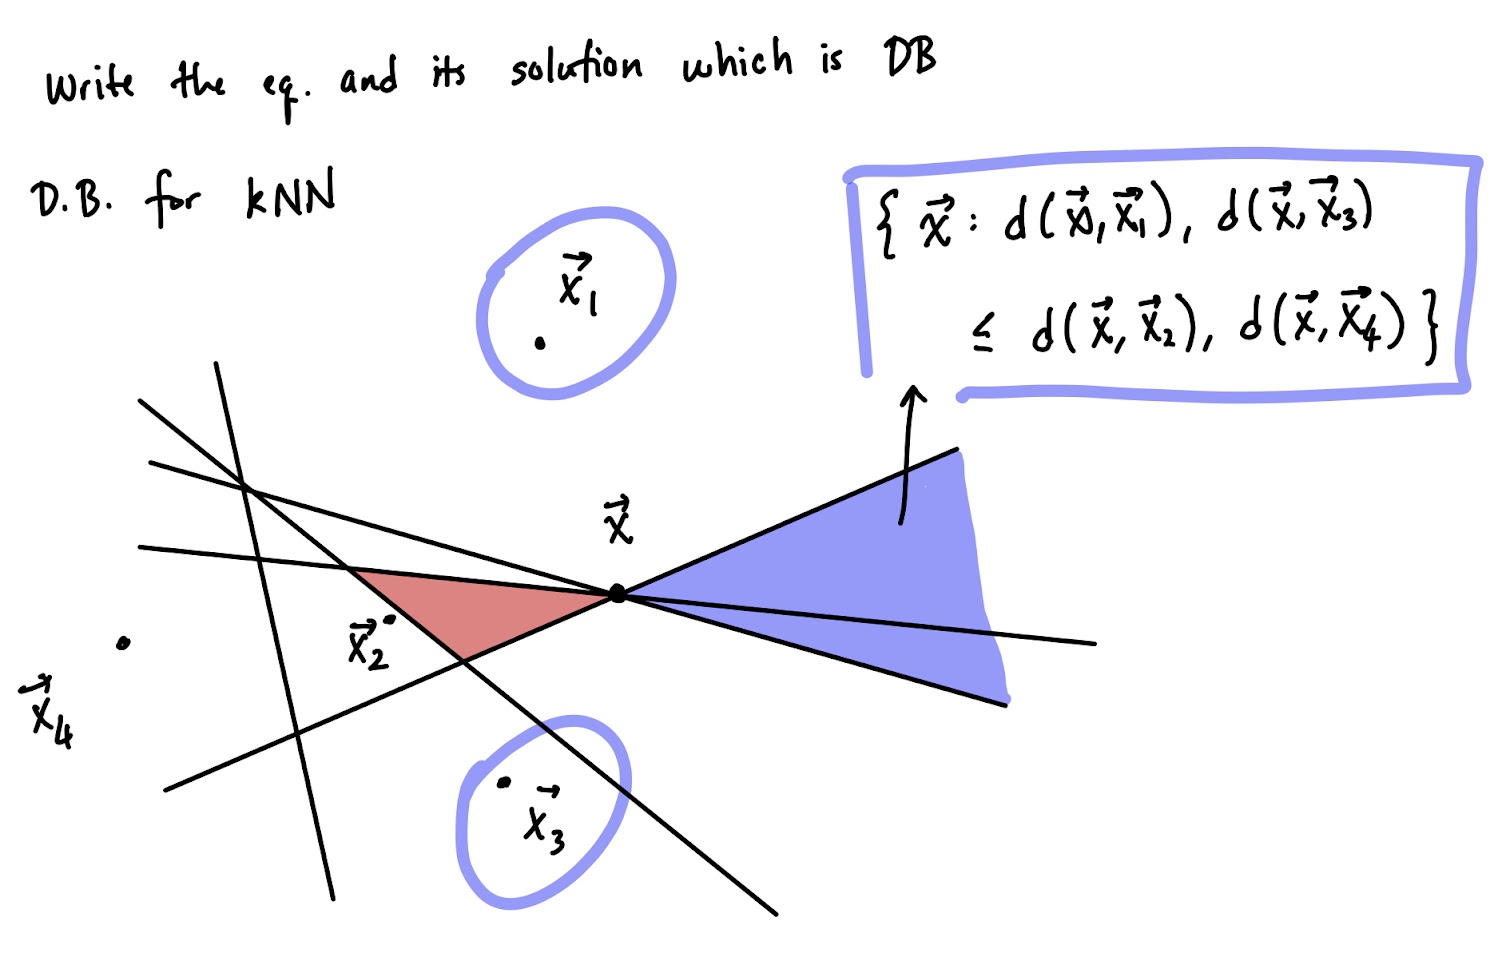 Write the eq. and its solution which is DB
D.B. for kNN
{ x⃗ : d(x⃗, x⃗₁), d(x⃗, x⃗₃)
≤ d(x⃗, x⃗₂), d(x⃗, x⃗₄) }
x⃗₁
x⃗
x⃗₂
x⃗₄
x⃗₃